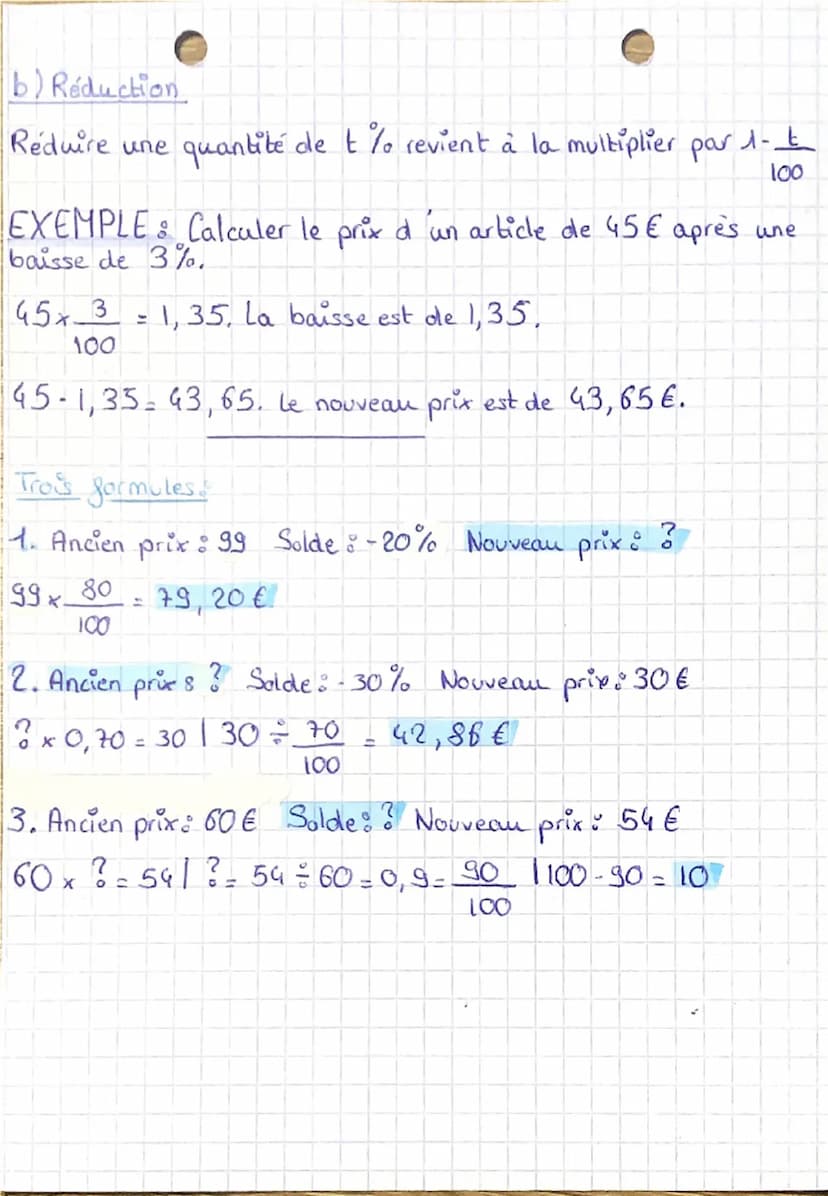 b) Réduction
Réduire une quantité de t % revient à la multiplier par 1 - t/100
EXEMPLE : Calculer le prix d'un article de 45 € après une
baisse de 3%.
45 x 3/100 = 1,35. La baisse est de 1,35.
45 - 1,35 = 43,65. Le nouveau prix est de 43,65 €.
Trois formules :
1. Ancien prix : 99 Solde : -20% Nouveau prix : ?
99 x 80/100 = 79,20 €
2. Ancien prix : ? Solde : -30% Nouveau prix : 30 €
? x 0,70 = 30 | 30 ÷ 70/100 = 42,86 €
3. Ancien prix : 60 € Solde : ? Nouveau prix : 54 €
60 x ? = 54 | ? = 54 ÷ 60 = 0,9 = 90/100 | 100 - 90 = 10